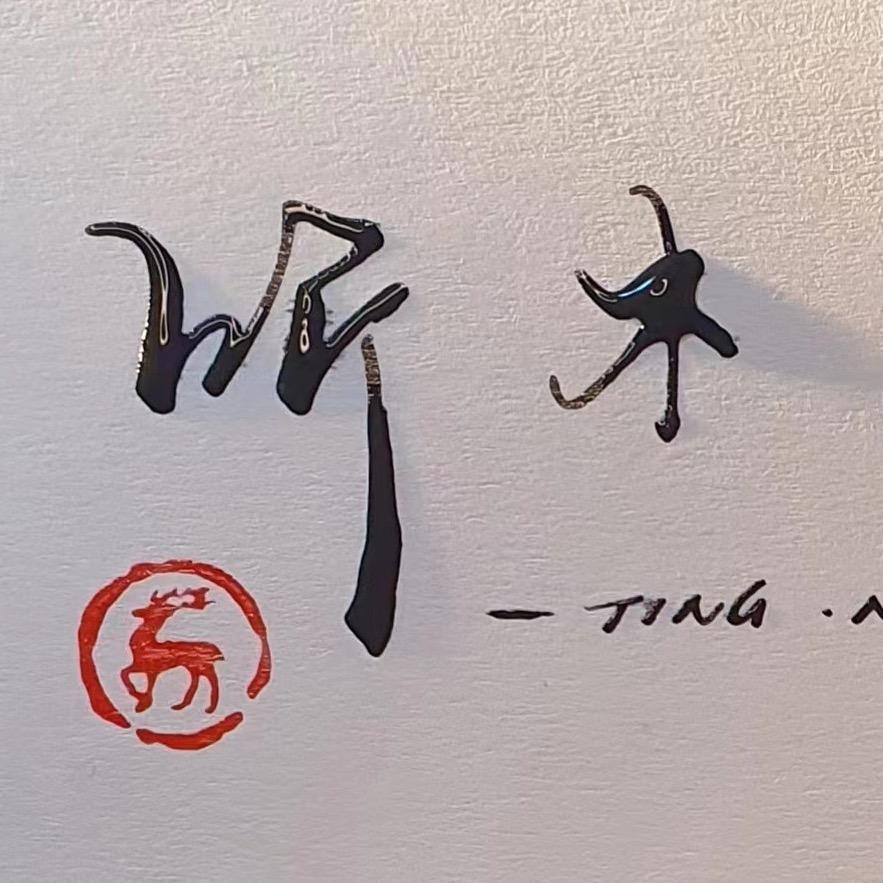 听木
— TING ·